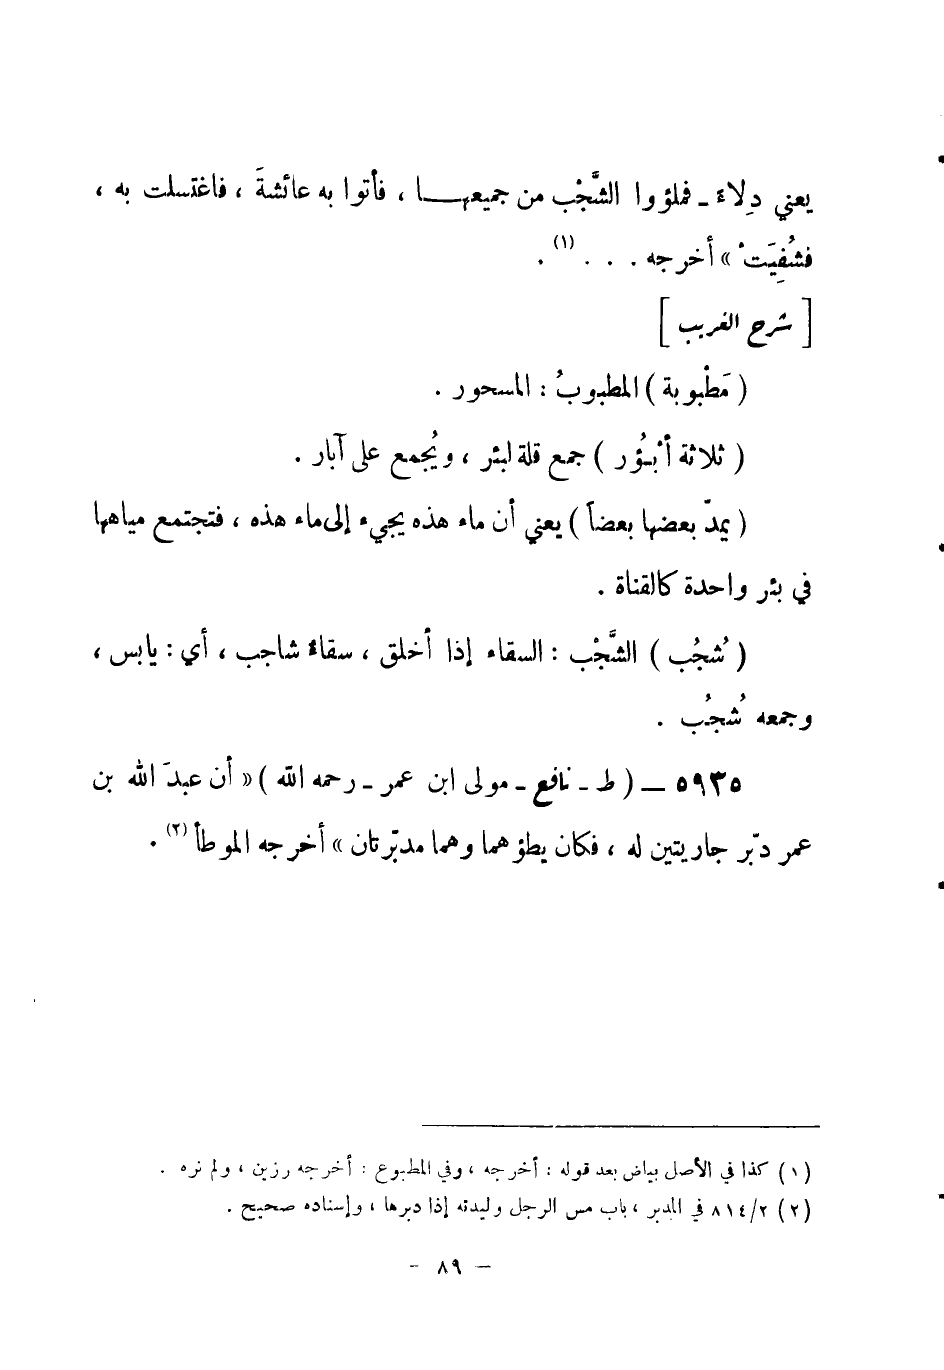 يعني دِلاءً ــ فملؤوا الشَّجْب من جميعهــــا ، فأتوا به عائشةَ ، فاغتسلت به ،
فشُفِيَتْ » أخرجه . . . (١) .
[ شرح الغريب ]
( مَطْبوبة ) المطبوبُ : المسحور .
( ثلاثة أبْـؤُر ) جمع قلة لبئر ، ويُجمع على آبار .
( يمدّ بعضها بعضاً ) يعني أن ماء هذه يجيء إلى ماء هذه ، فتجتمع مياهها
في بئر واحدة كالقناة .
( شُجُب ) الشَّجْب : السقاء إذا أخلق ، سقاءٌ شاجب ، أي : يابس ،
وجمعه شُجُب .
٥٩٣٥ — ( ط ـ نافع ـ مولى ابن عمر ـ رحمه الله ) « أن عبدَ الله بن
عمر دبّر جاريتين له ، فكان يطؤهما وهما مدبّرتان » أخرجه الموطأ (٢) .
(١) كذا في الأصل بياض بعد قوله : أخرجه ، وفي المطبوع : أخرجه رزين ، ولم نره .
(٢) ٨١٤/٢ في المدبر ، باب مس الرجل وليدته إذا دبرها ، وإسناده صحيح .
- ٨٩ -